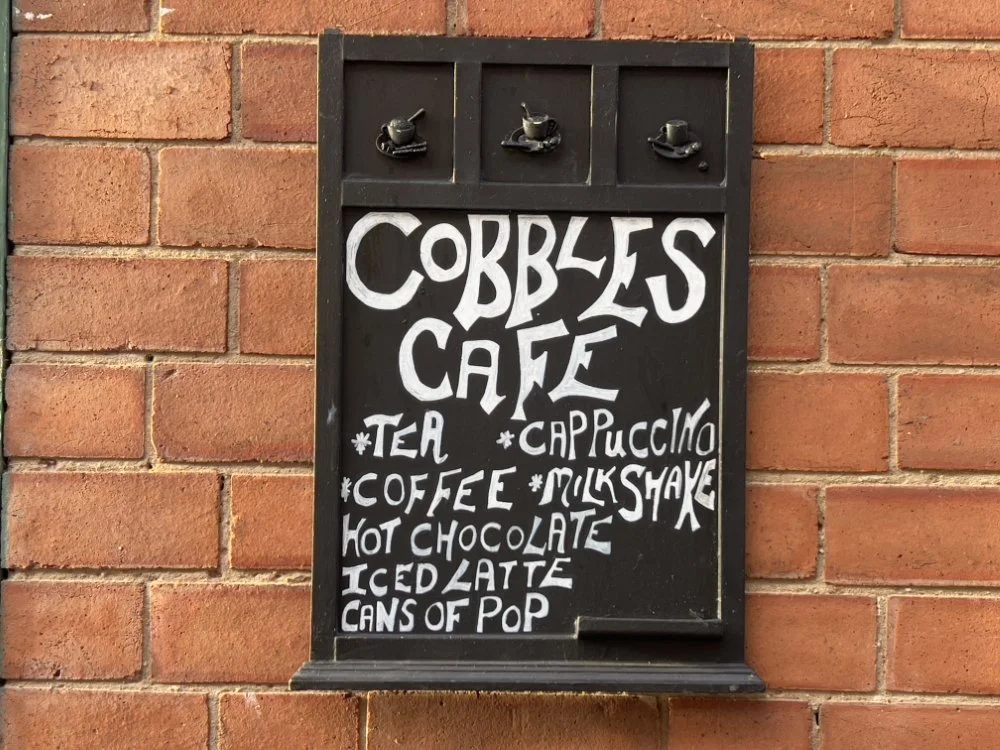 COBBLES
CAFE
*TEA *CAPPUCCINO
*COFFEE *MILKSHAKE
HOT CHOCOLATE
ICED LATTE
CANS OF POP